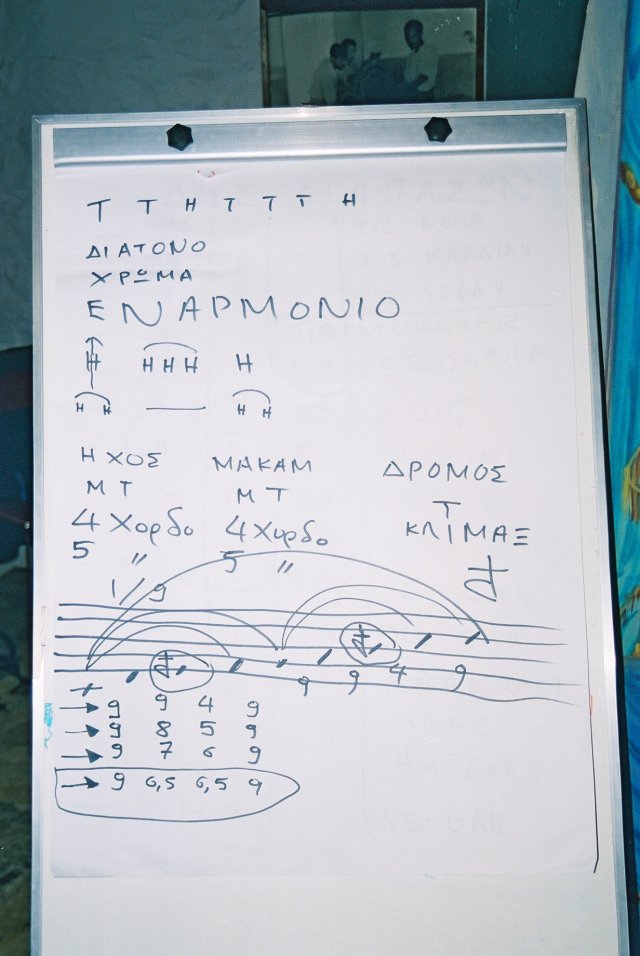 Τ Τ Η Τ Τ Τ Η
ΔΙΑΤΟΝΟ
ΧΡΩΜΑ
ΕΝΑΡΜΟΝΙΟ
Η ΗΗΗ Η
Η Η Η Η
ΗΧΟΣ ΜΑΚΑΜ ΔΡΟΜΟΣ
ΜΤ ΜΤ Τ
4 Χορδο 4 Χορδο ΚΛΙΜΑΞ
5 " 5 "
1/9
9 9 4 9
9 9 4 9
9 8 5 9
9 7 6 9
9 6,5 6,5 9